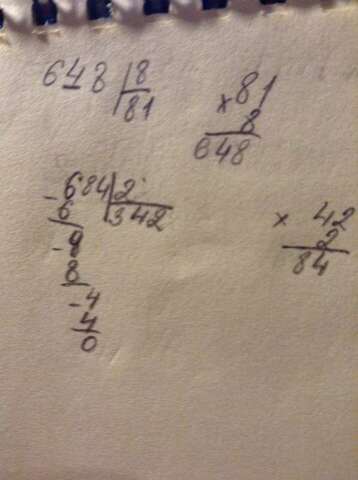 648 | 8
81
× 81
8
648
- 684 | 2
6 342
- 8
8
- 4
4
0
× 42
2
84